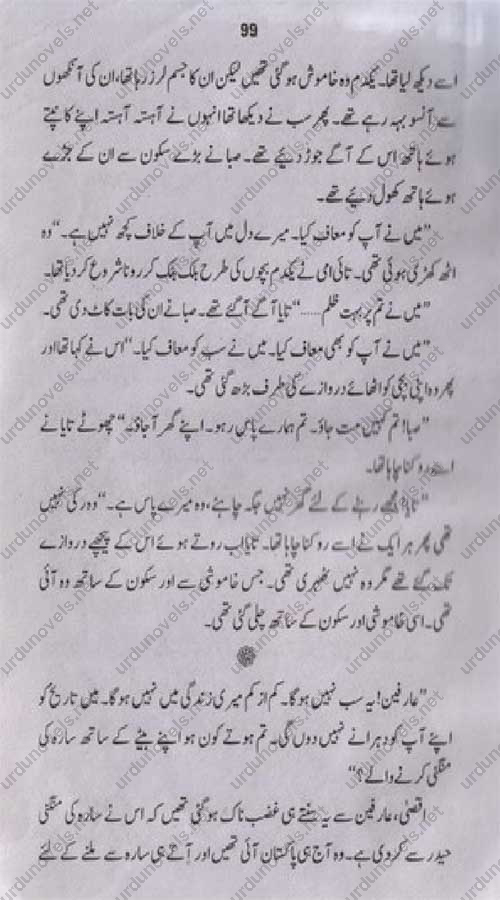 99
اسے دیکھ لیا تھا۔ یکدم وہ خاموش ہو گئی تھیں لیکن ان کا جسم لرز رہا تھا، ان کی آنکھوں
سے آنسو بہہ رہے تھے۔ پھر سب نے دیکھا تھا انہوں نے آہستہ آہستہ اپنے کانپتے
ہوئے ہاتھ اس کے آگے جوڑ دیئے تھے۔ صبا نے بڑے سکون سے ان کے جڑے
ہوئے ہاتھ کھول دیئے تھے۔
”میں نے آپ کو معاف کیا۔ میرے دل میں آپ کے خلاف کچھ نہیں ہے۔“ وہ
اٹھ کھڑی ہوئی تھی۔ تائی امی نے یکدم بچوں کی طرح بلک بلک کر رونا شروع کر دیا تھا۔
”میں نے تم پر بہت ظلم......“ تایا آگے آ گئے تھے۔ صبا نے ان کی بات کاٹ دی تھی۔
”میں نے آپ کو بھی معاف کیا۔ میں نے سب کو معاف کیا۔“ اس نے کہا تھا اور
پھر وہ اپنی بچی کو اٹھائے دروازے کی طرف بڑھ گئی تھی۔
”صبا! تم کہیں مت جاؤ۔ تم ہمارے پاس رہو۔ اپنے گھر آ جاؤ۔“ چھوٹے تایا نے
اسے روکنا چاہا تھا۔
”تایا! مجھے رہنے کے لئے گھر نہیں جگہ چاہئے، وہ میرے پاس ہے۔“ وہ رکی نہیں
تھی پھر ہر ایک نے اسے روکنا چاہا تھا۔ تایا اب روتے ہوئے اس کے پیچھے دروازے
تک گئے تھے مگر وہ نہیں ٹھہری تھی۔ جس خاموشی سے اور سکون کے ساتھ وہ آئی
تھی۔ اسی خاموشی اور سکون کے ساتھ چلی گئی تھی۔
”عارفین! یہ سب نہیں ہو گا۔ کم از کم میری زندگی میں نہیں ہو گا۔ میں تاریخ کو
اپنے آپ کو دہرانے نہیں دوں گی۔ تم ہوتے کون ہو اپنے بیٹے کے ساتھ سارہ کی
منگنی کرنے والے؟“
اقصیٰ، عارفین سے یہ سنتے ہی غضب ناک ہو گئی تھیں کہ اس نے سارہ کی منگنی
حیدر سے کر دی ہے۔ وہ آج ہی پاکستان آئی تھیں اور آتے ہی سارہ سے ملنے کے لئے
urdunovels.net